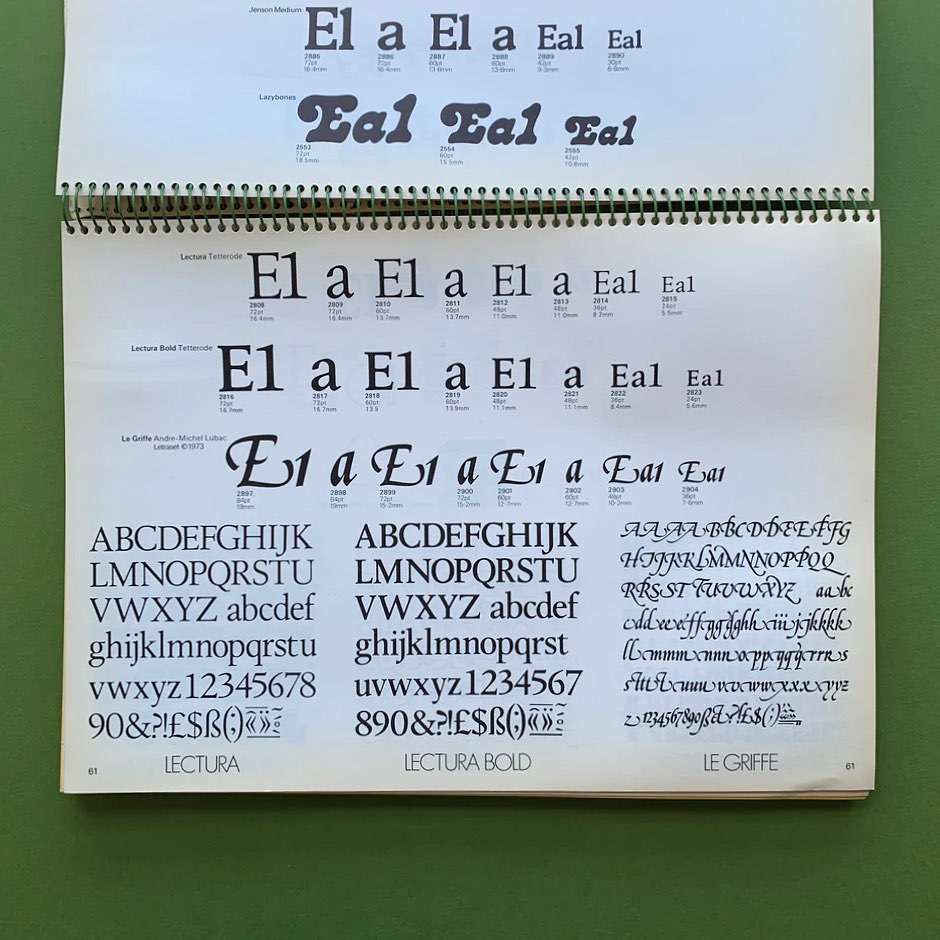 Jenson Medium
E1 a E1 a Ea1 Ea1
2885 2886 2887 2888 2889 2890
72pt 72pt 60pt 60pt 42pt 30pt
16·4mm 16·4mm 13·6mm 13·6mm 9·3mm 6·8mm
Lazybones
Ea1 Ea1 Ea1
2553 2554 2555
72pt 60pt 42pt
18.5mm 15.5mm 10.8mm
Lectura Tetterode
E1 a E1 a E1 a Ea1 Ea1
2808 2809 2810 2811 2812 2813 2814 2815
72pt 72pt 60pt 60pt 48pt 48pt 36pt 24pt
16.4mm 16.4mm 13.7mm 13.7mm 11.0mm 11.0mm 8.2mm 5.5mm
Lectura Bold Tetterode
E1 a E1 a E1 a Ea1 Ea1
2816 2817 2818 2819 2820 2821 2822 2823
72pt 72pt 60pt 60pt 48pt 48pt 36pt 24pt
16.7mm 16.7mm 13.9 13.9mm 11.1mm 11.1mm 8.4mm 5.6mm
Le Griffe Andre-Michel Lubac
Letraset ©1973
E1 a E1 a E1 a Ea1 Ea1
2897. 2898 2899 2900 2901 2902 2903 2904
84pt 84pt 72pt 72pt 60pt 60pt 48pt 36pt
19mm 19mm 15·2mm 15·2mm 12·7mm 12·7mm 10·2mm 7·6mm
ABCDEFGHIJK
LMNOPQRSTU
VWXYZ abcdef
ghijklmnopqrstu
vwxyz12345678
90&?!£$ß(;)«»
LECTURA
ABCDEFGHIJK
LMNOPQRSTU
VWXYZ abcdef
ghijklmnopqrst
uvwxyz1234567
890&?!£$ß(;)«»
LECTURA BOLD
LE GRIFFE
61
61